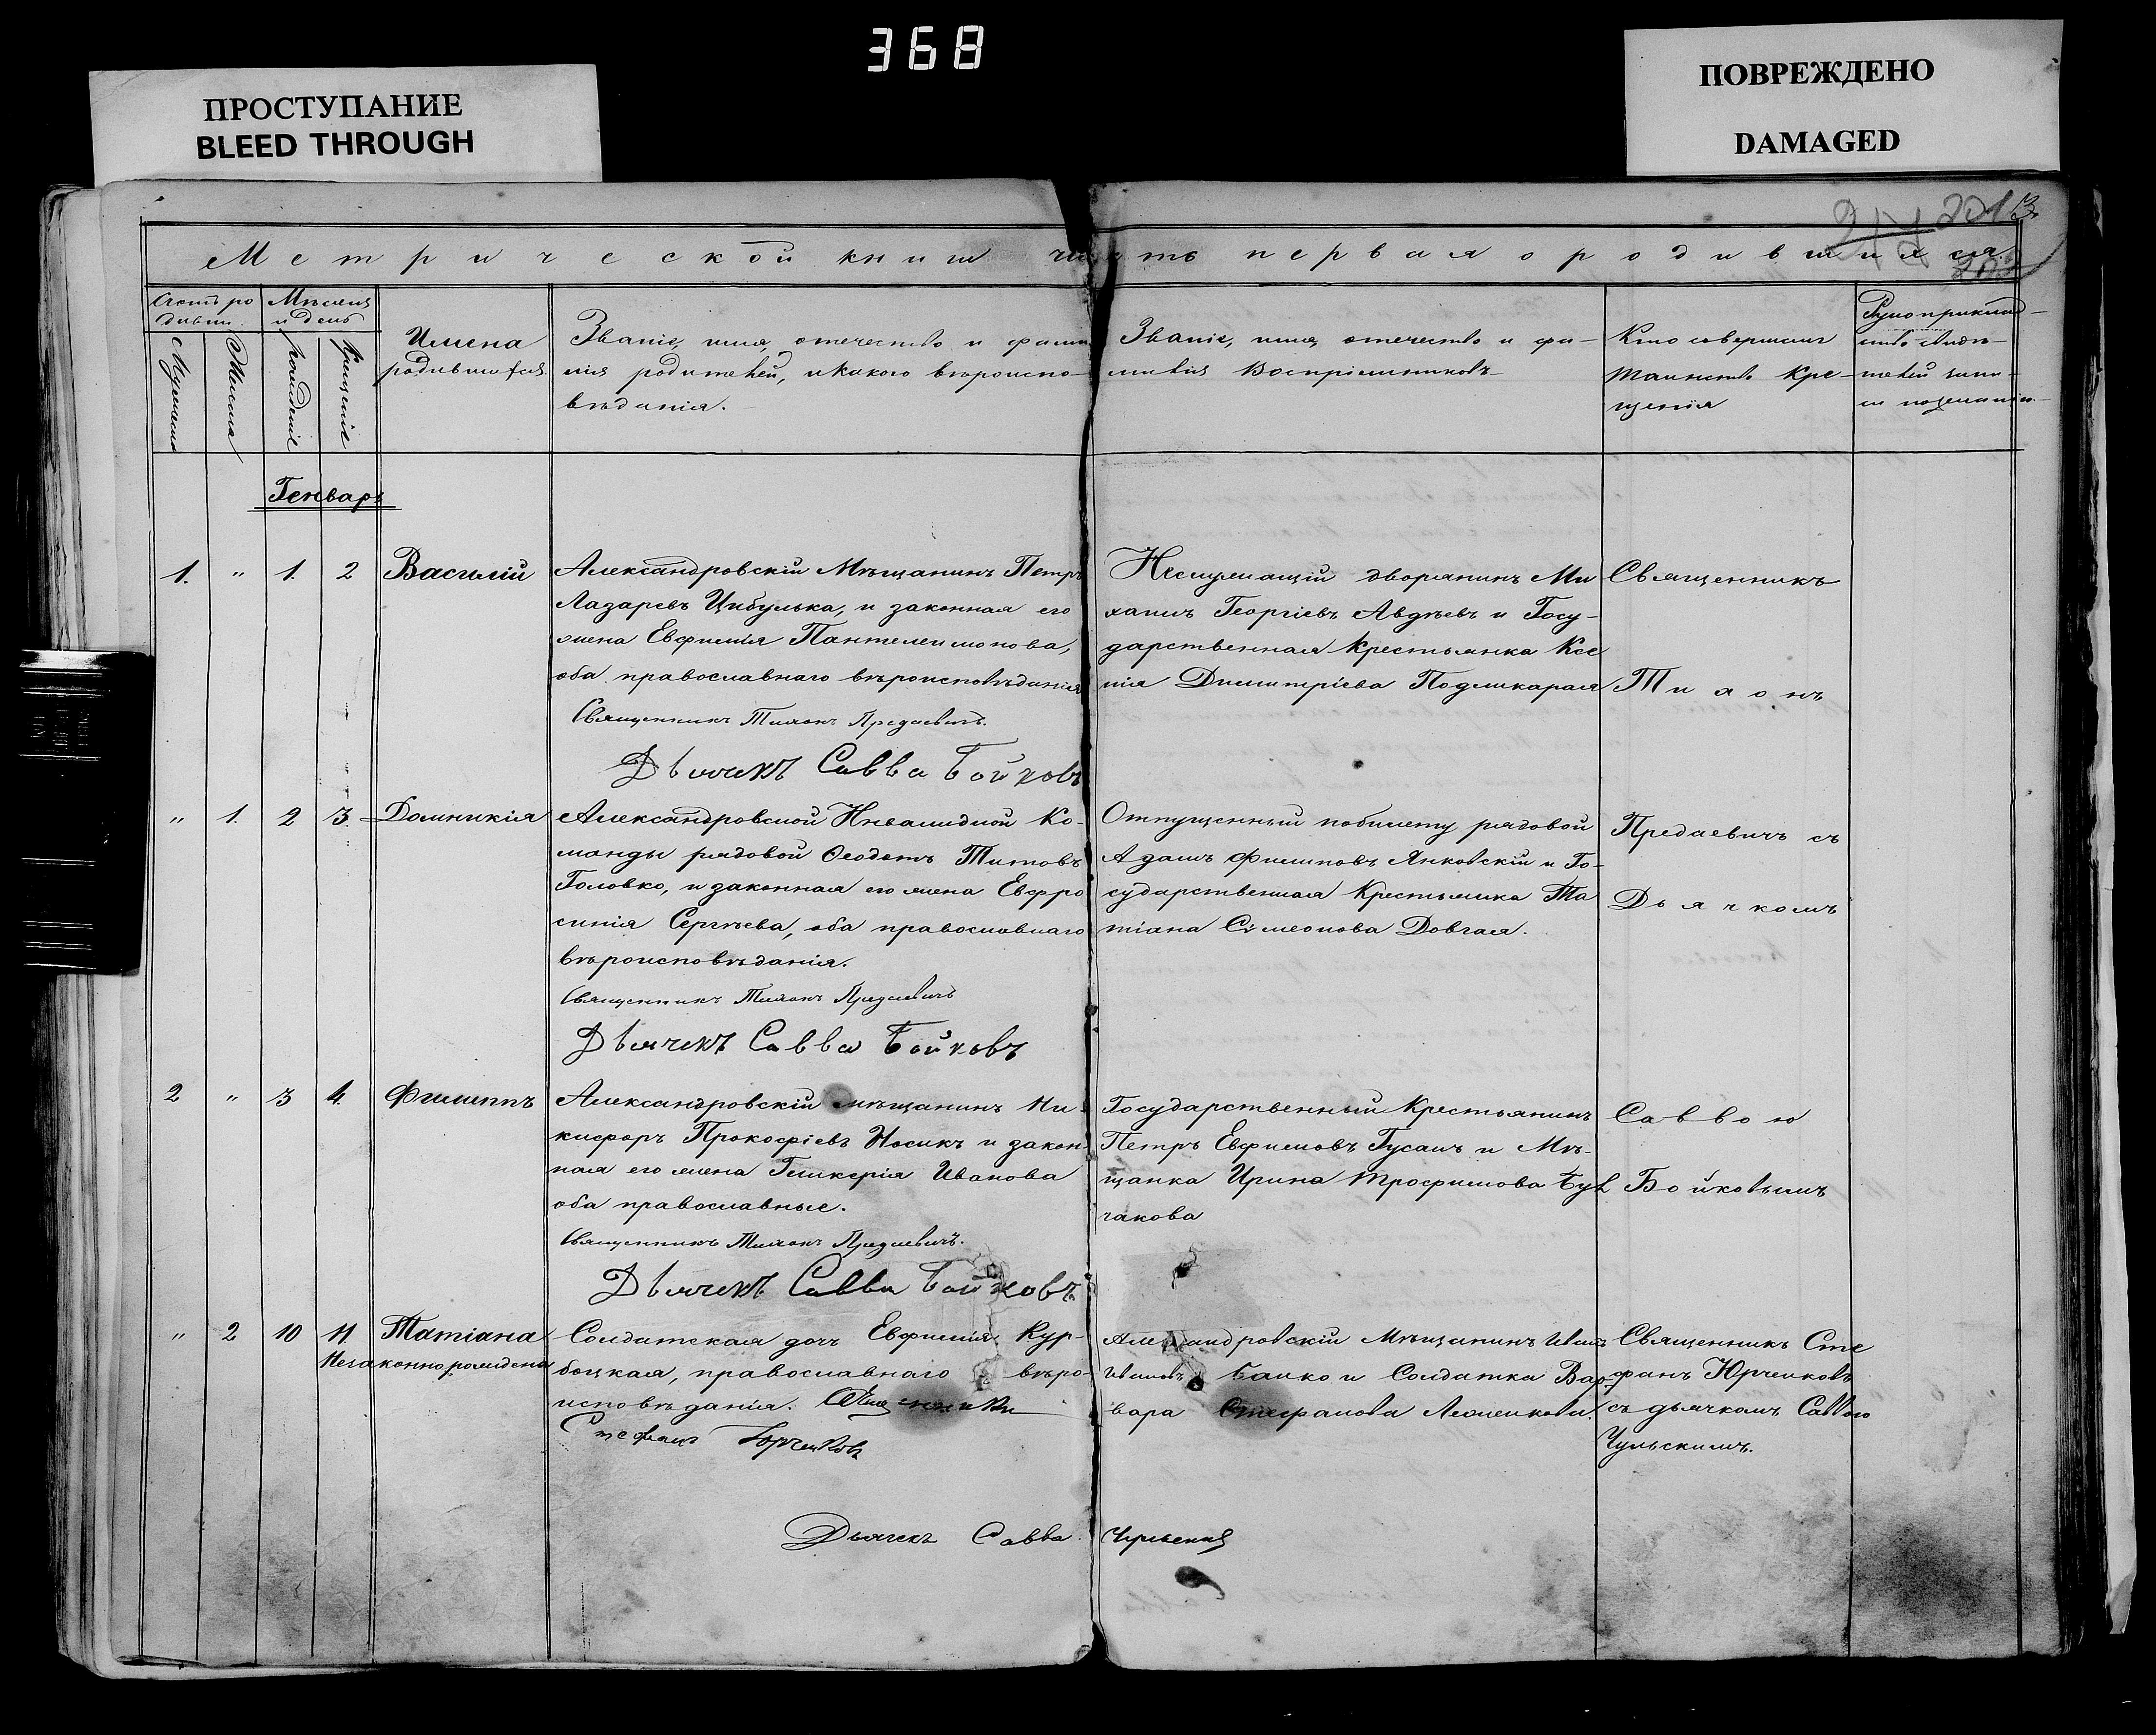 368
ПРОСТУПАНИЕ
BLEED THROUGH
ПОВРЕЖДЕНО
DAMAGED
201
Метрической книги часть первая о родившихся.
Счетъ ро
дивш.
Мѣсяцъ
и день
Мужеска
Женска
рожденіе
крещеніе
Имена
родившихся.
Званіе, имя, отечество и фами
лія родителей, и какого вѣроиспо-
вѣданія.
Званіе, имя, отечество и фа-
милія Воспріемниковъ
Кто совершалъ
таинство кре-
щенія
Рукоприклад-
ство свидѣ-
телей запи-
си по желанію.
Генварь
1. " 1. 2 Василій
Александровскій Мѣщанинъ Петръ
Лазаревъ Цибулька, и законная его
жена Евфимія Пантелеимонова,
оба православнаго вѣроисповѣданія
Священникъ Тихонъ Предаевичъ.
Дьячекъ Савва Бойковъ
Неслужащій дворянинъ Ми
хаилъ Георгіевъ Авдѣевъ и Госу-
дарственная Крестьянка Ксе
нія Димитріева
Священникъ
Тихонъ
" 1. 2 3. Домникія
Александровской Инвалидной Ко-
манды рядовой Ѳеодотъ Титовъ
Головко, и законная его жена Евфро
синія Сергѣева, оба православнаго
вѣроисповѣданія.
Священникъ Тихонъ Предаевичъ
Дьячекъ Савва Бойковъ
Отпущенный по билету рядовой
Адамъ Филиповъ Янковскій и Го-
сударственная Крестьянка Та
тіана Сѵмеонова Довгая.
Предаевичъ съ
Дьячкомъ
2 " 3 4. Филиппъ
Александровскій мѣщанинъ Ни-
кифоръ Прокофіевъ Носикъ и закон-
ная его жена Гликерія Иванова
оба православные.
Священникъ Тихонъ Предаевичъ.
Дьячекъ Савва Бойковъ
Государственный Крестьянинъ
Петръ Евфимовъ Гусакъ и Мѣ-
щанка Ирина Трофимова
Саввою
Бойковымъ
" 2 10 11. Татіана
Незаконнорождена
Солдатская дочь Евфимія Кур-
боцкая, православнаго вѣро-
исповѣданія. Священникъ
Стефанъ Юрченковъ
Дьячекъ Савва Чульскій
Александровскій Мѣщанинъ Иванъ
Ивановъ Банко и Солдатка Вар-
вара Стефанова
Священникъ Сте
фанъ Юрченковъ
съ дьячкомъ Саввою
Чульскимъ.